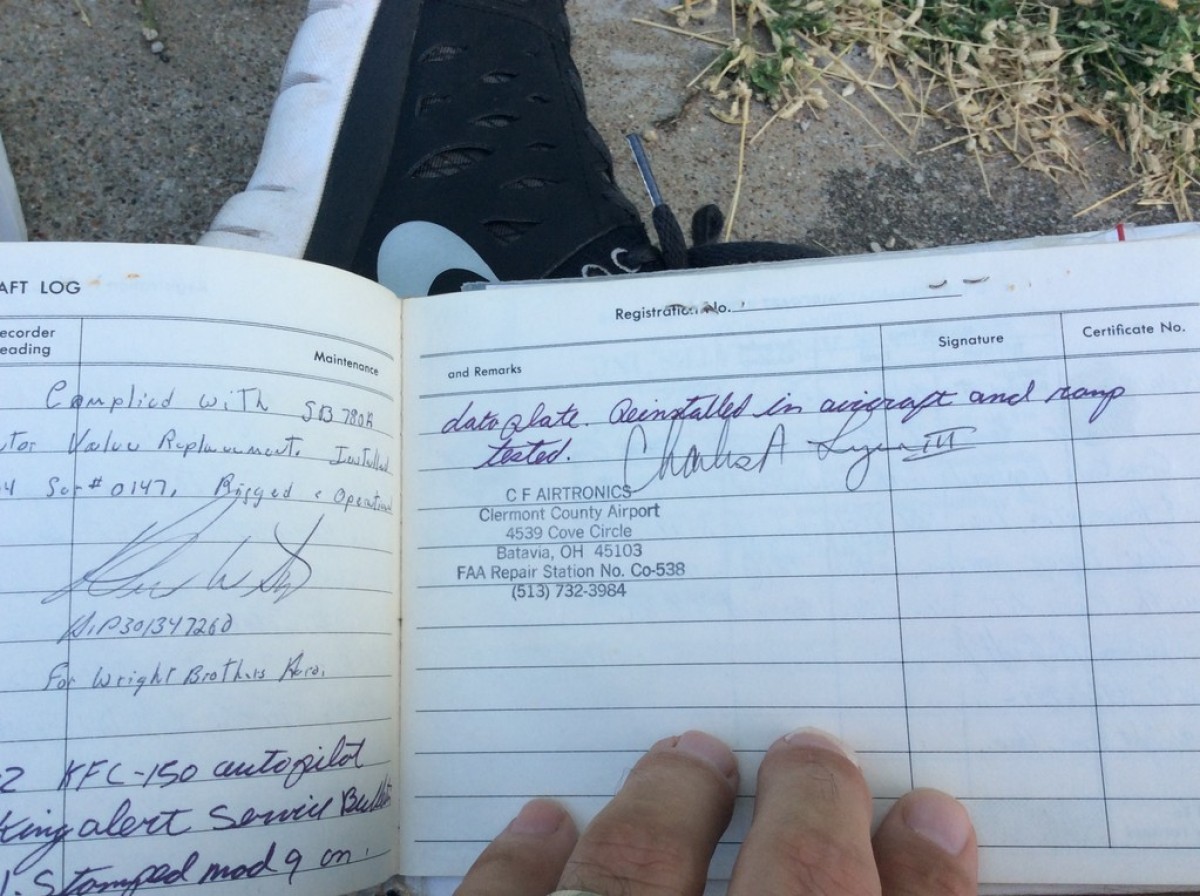 AFT LOG
ecorder
eading
Maintenance
Complied with SB 780A
tor Value Replacement. Installed
4 Ser# 0147, Rigged & Operational
A&P301347260
For Wright Brothers Aero.
2 KFC-150 autopilot
King alert Service Bulletin
. Stamped mod 9 on
Registration No.
and Remarks
Signature
Certificate No.
data plate. Reinstalled in aircraft and ramp
tested. Charles A III
C F AIRTRONICS
Clermont County Airport
4539 Cove Circle
Batavia, OH 45103
FAA Repair Station No. Co-538
(513) 732-3984